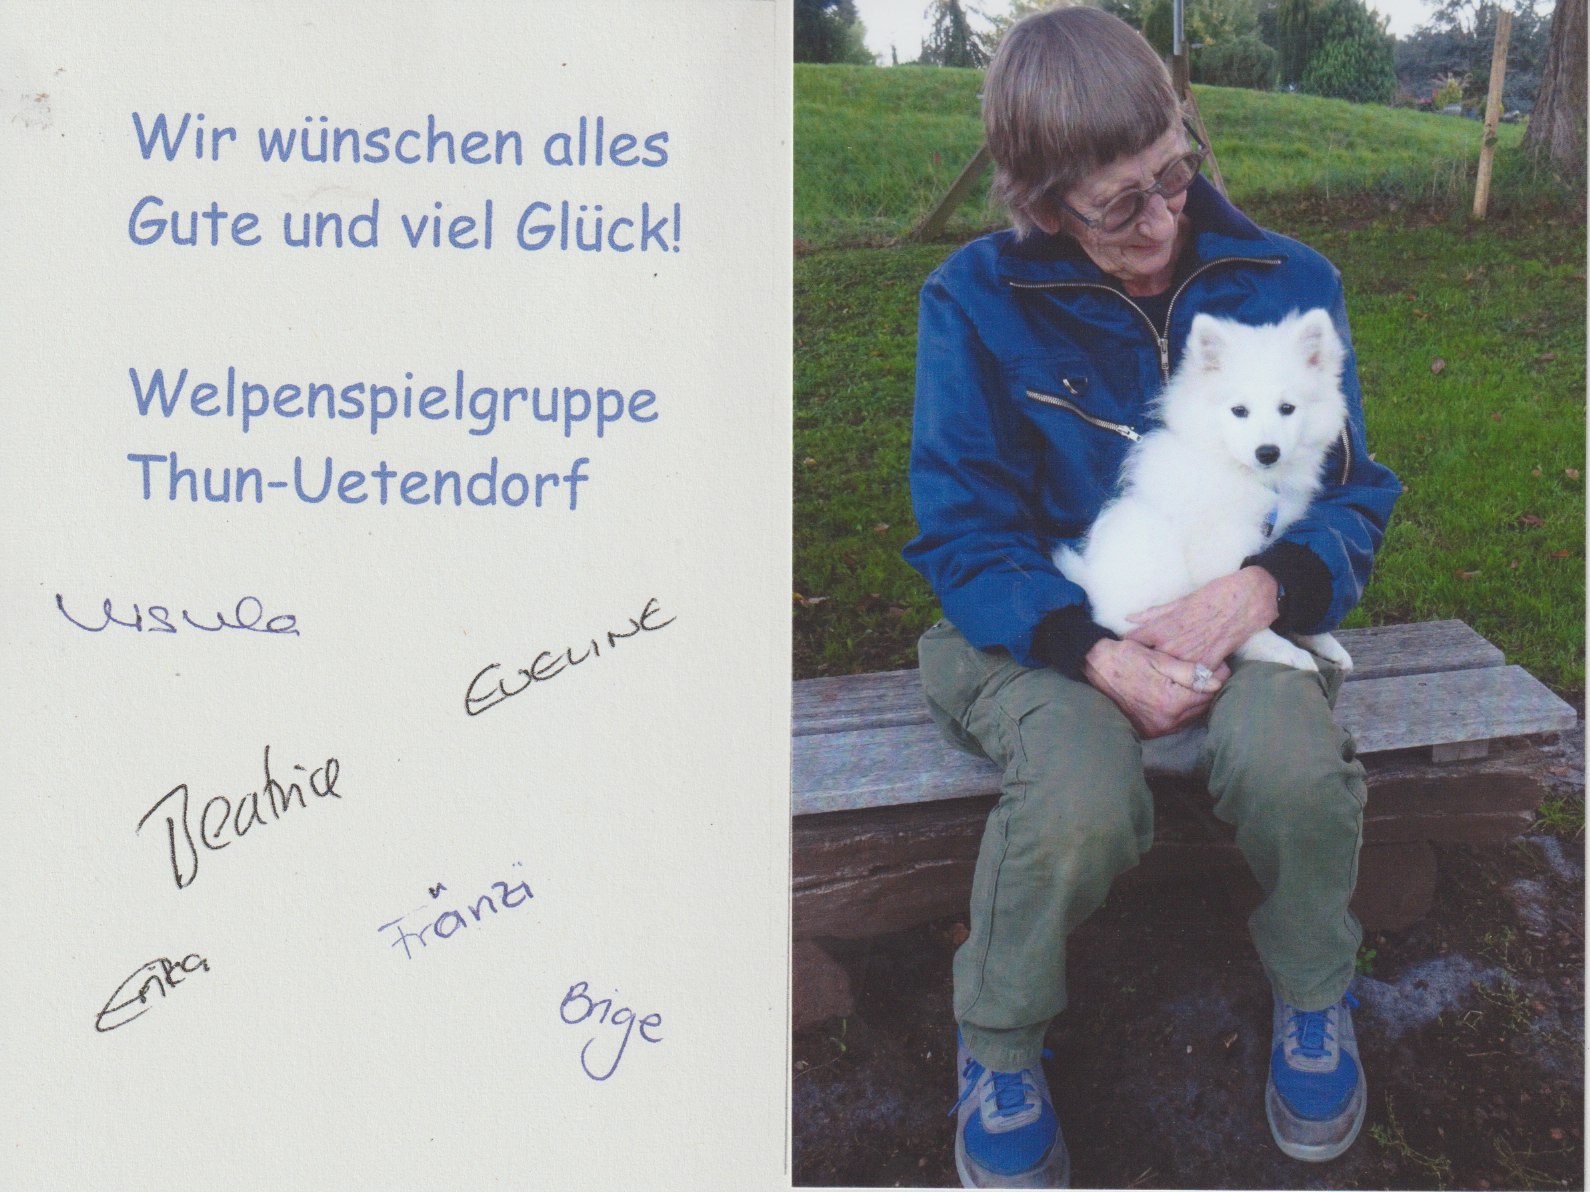 Wir wünschen alles
Gute und viel Glück!
Welpenspielgruppe
Thun-Uetendorf
Ursula
EVELINE
Beatrice
Fränzi
Erika
Brige